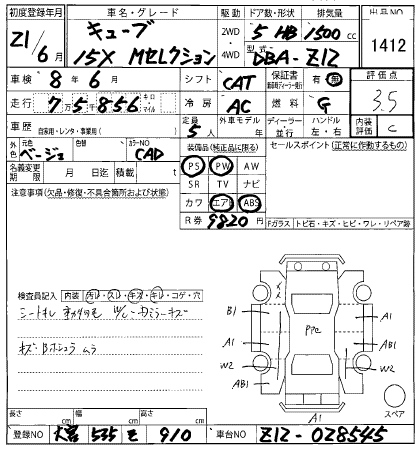 初度登録年月 車名・グレード 駆動 ドア数・形状 排気量 出品NO
21年 キューブ 2WD 5 HB 1500cc 1412
6月 15X Mセレクション 4WD 型式 DBA-Z12
車検 8年 6月 シフト CAT 保証書 有 無 評価点
走行 7万5千856 キロ・マイル 冷房 AC 燃料 G 3.5
車歴 自家用・レンタ・事業用( ) 定員 5人 外車モデル 年 ディーラー・並行 ハンドル 左・右 内装評価 C
外色 元色 ベージュ 色替 カラーNO CAD 装備品(純正品に限る) セールスポイント(正常に作動するもの)
名義変更期限 月 日迄 積載 t PS PW AW
注意事項(欠品・修復・不具合箇所および状態) SR TV ナビ
カワ エアB ABS
R券 9820円 Fガラス トビ石・キズ・ヒビ・ワレ・リペア跡
検査員記入 内装 汚レ・スレ・キズ・キレ・コゲ・穴
B1 A1
PPe
A1 A1
W2 W2
AB1 AB1
A1 スペア
長さ cm 幅 cm 高さ cm
登録NO 大宮 535 そ 910 車台NO Z12-028545